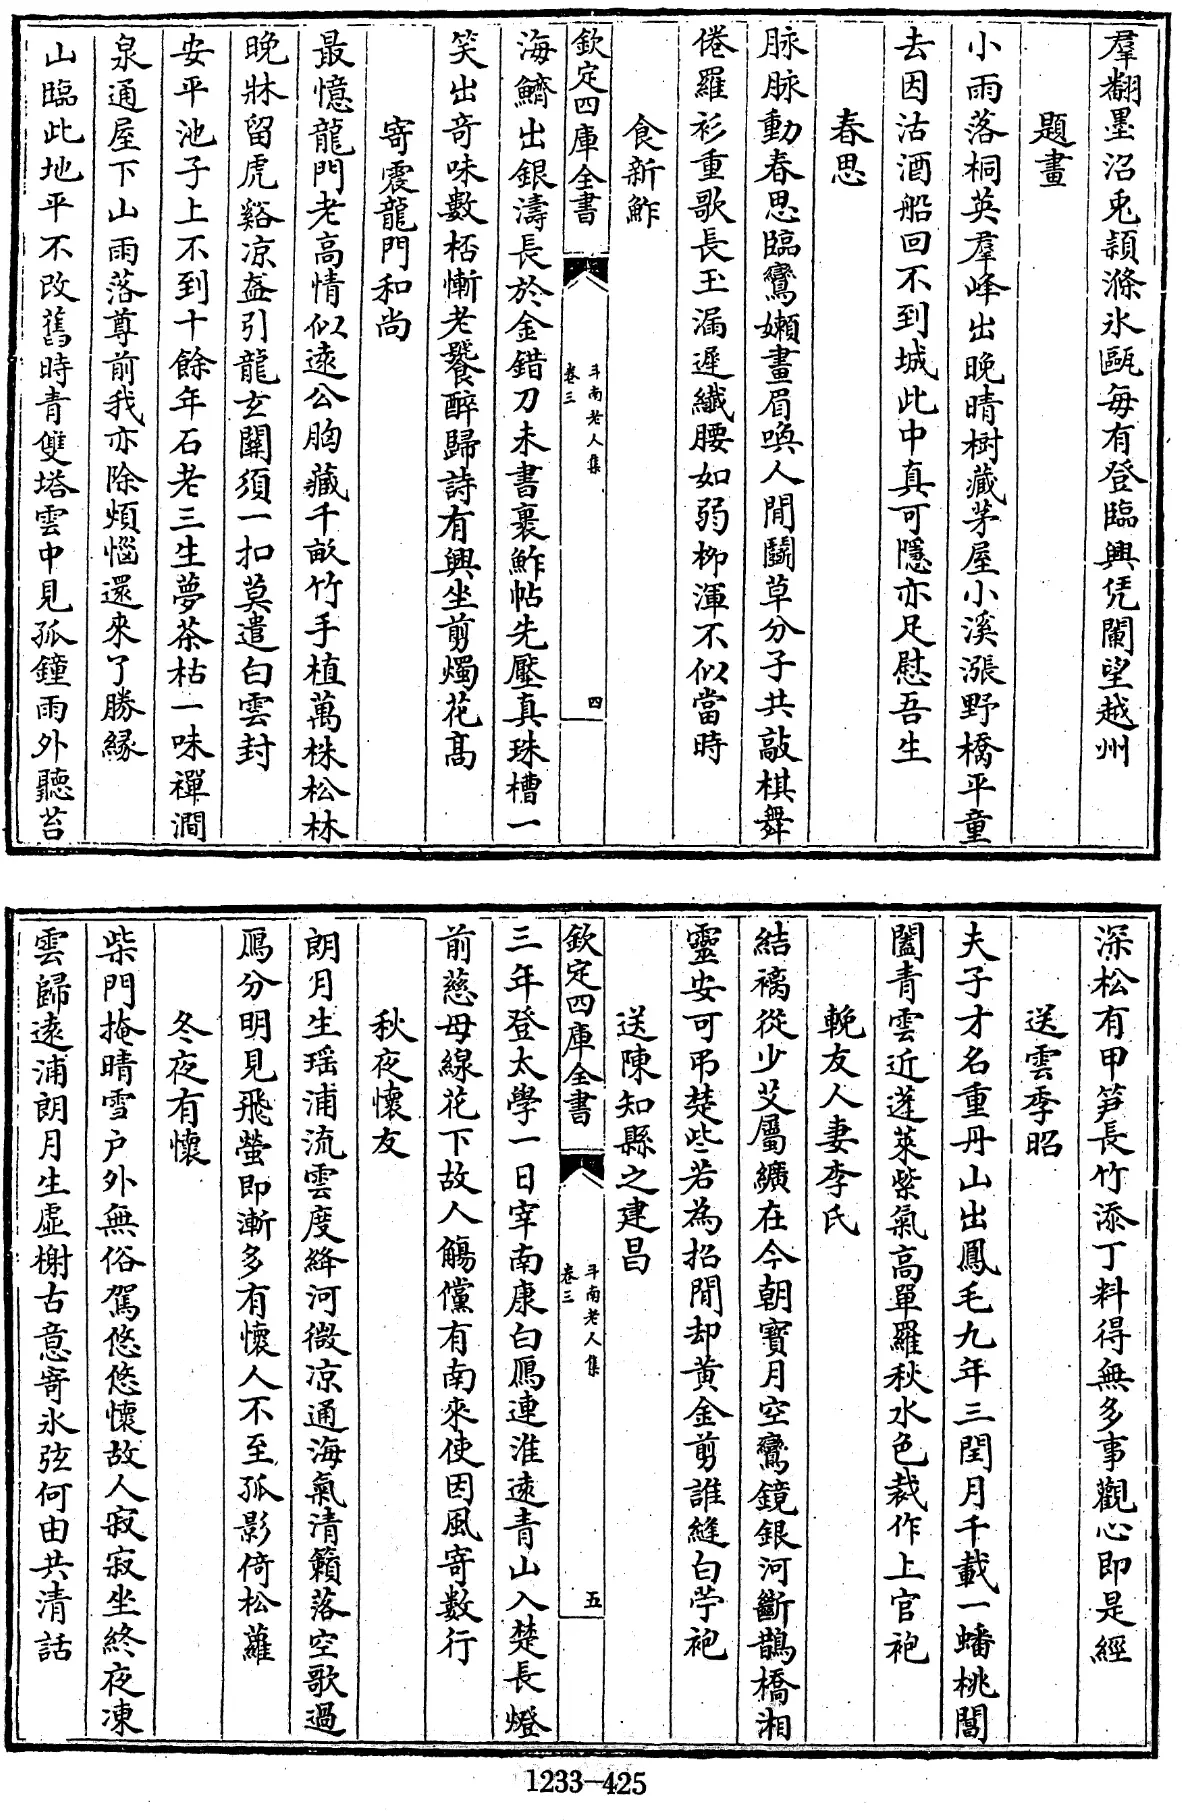 羣翻墨沼兎頴滌氷甌每有登臨興凭闌望越州
題畫
小雨落桐英羣峰出晚晴樹藏茅屋小溪漲野橋平童
去因沽酒船回不到城此中真可隱亦足慰吾生
春思
脉脉動春思臨鸞嬾畫眉喚人閒鬬草分子共敲棋舞
倦羅衫重歌長玉漏遲纖腰如弱柳渾不似當時
食新鮓
欽定四庫全書
斗南老人集
卷三
四
海鰽出銀濤長於金錯刀未書裹鮓帖先壓真珠槽一
笑出奇味數桮慚老饕醉歸詩有興坐剪燭花髙
寄震龍門和尚
最憶龍門老高情似遠公胸藏千畝竹手植萬株松林
晚牀留虎谿凉盋引龍玄關須一扣莫遣白雲封
安平池子上不到十餘年石老三生夢茶枯一味禪澗
泉通屋下山雨落尊前我亦除煩惱還來了勝縁
山臨此地平不改舊時青雙塔雲中見孤鐘雨外聽苔
深松有甲笋長竹添丁料得無多事觀心即是經
送雲季昭
夫子才名重丹山出鳳毛九年三閏月千載一蟠桃閶
闔青雲近蓬萊紫氣高單羅秋水色裁作上官袍
輓友人妻李氏
結褵從少艾屬纊在今朝寶月空鸞鏡銀河斷鵲橋湘
靈安可弔楚些若為招閒却黄金剪誰縫白苧袍
送陳知縣之建昌
欽定四庫全書
斗南老人集
卷三
五
三年登太學一日宰南康白鴈連淮遠青山入楚長燈
前慈母線花下故人觴儻有南來使因風寄數行
秋夜懷友
朗月生瑶浦流雲度絳河微凉通海氣清籟落空歌過
鴈分明見飛螢即漸多有懷人不至孤影倚松蘿
冬夜有懷
柴門掩晴雪户外無俗駕悠悠懷故人寂寂坐終夜凍
雲歸遠浦朗月生虛榭古意寄氷弦何由共清話
1233-425